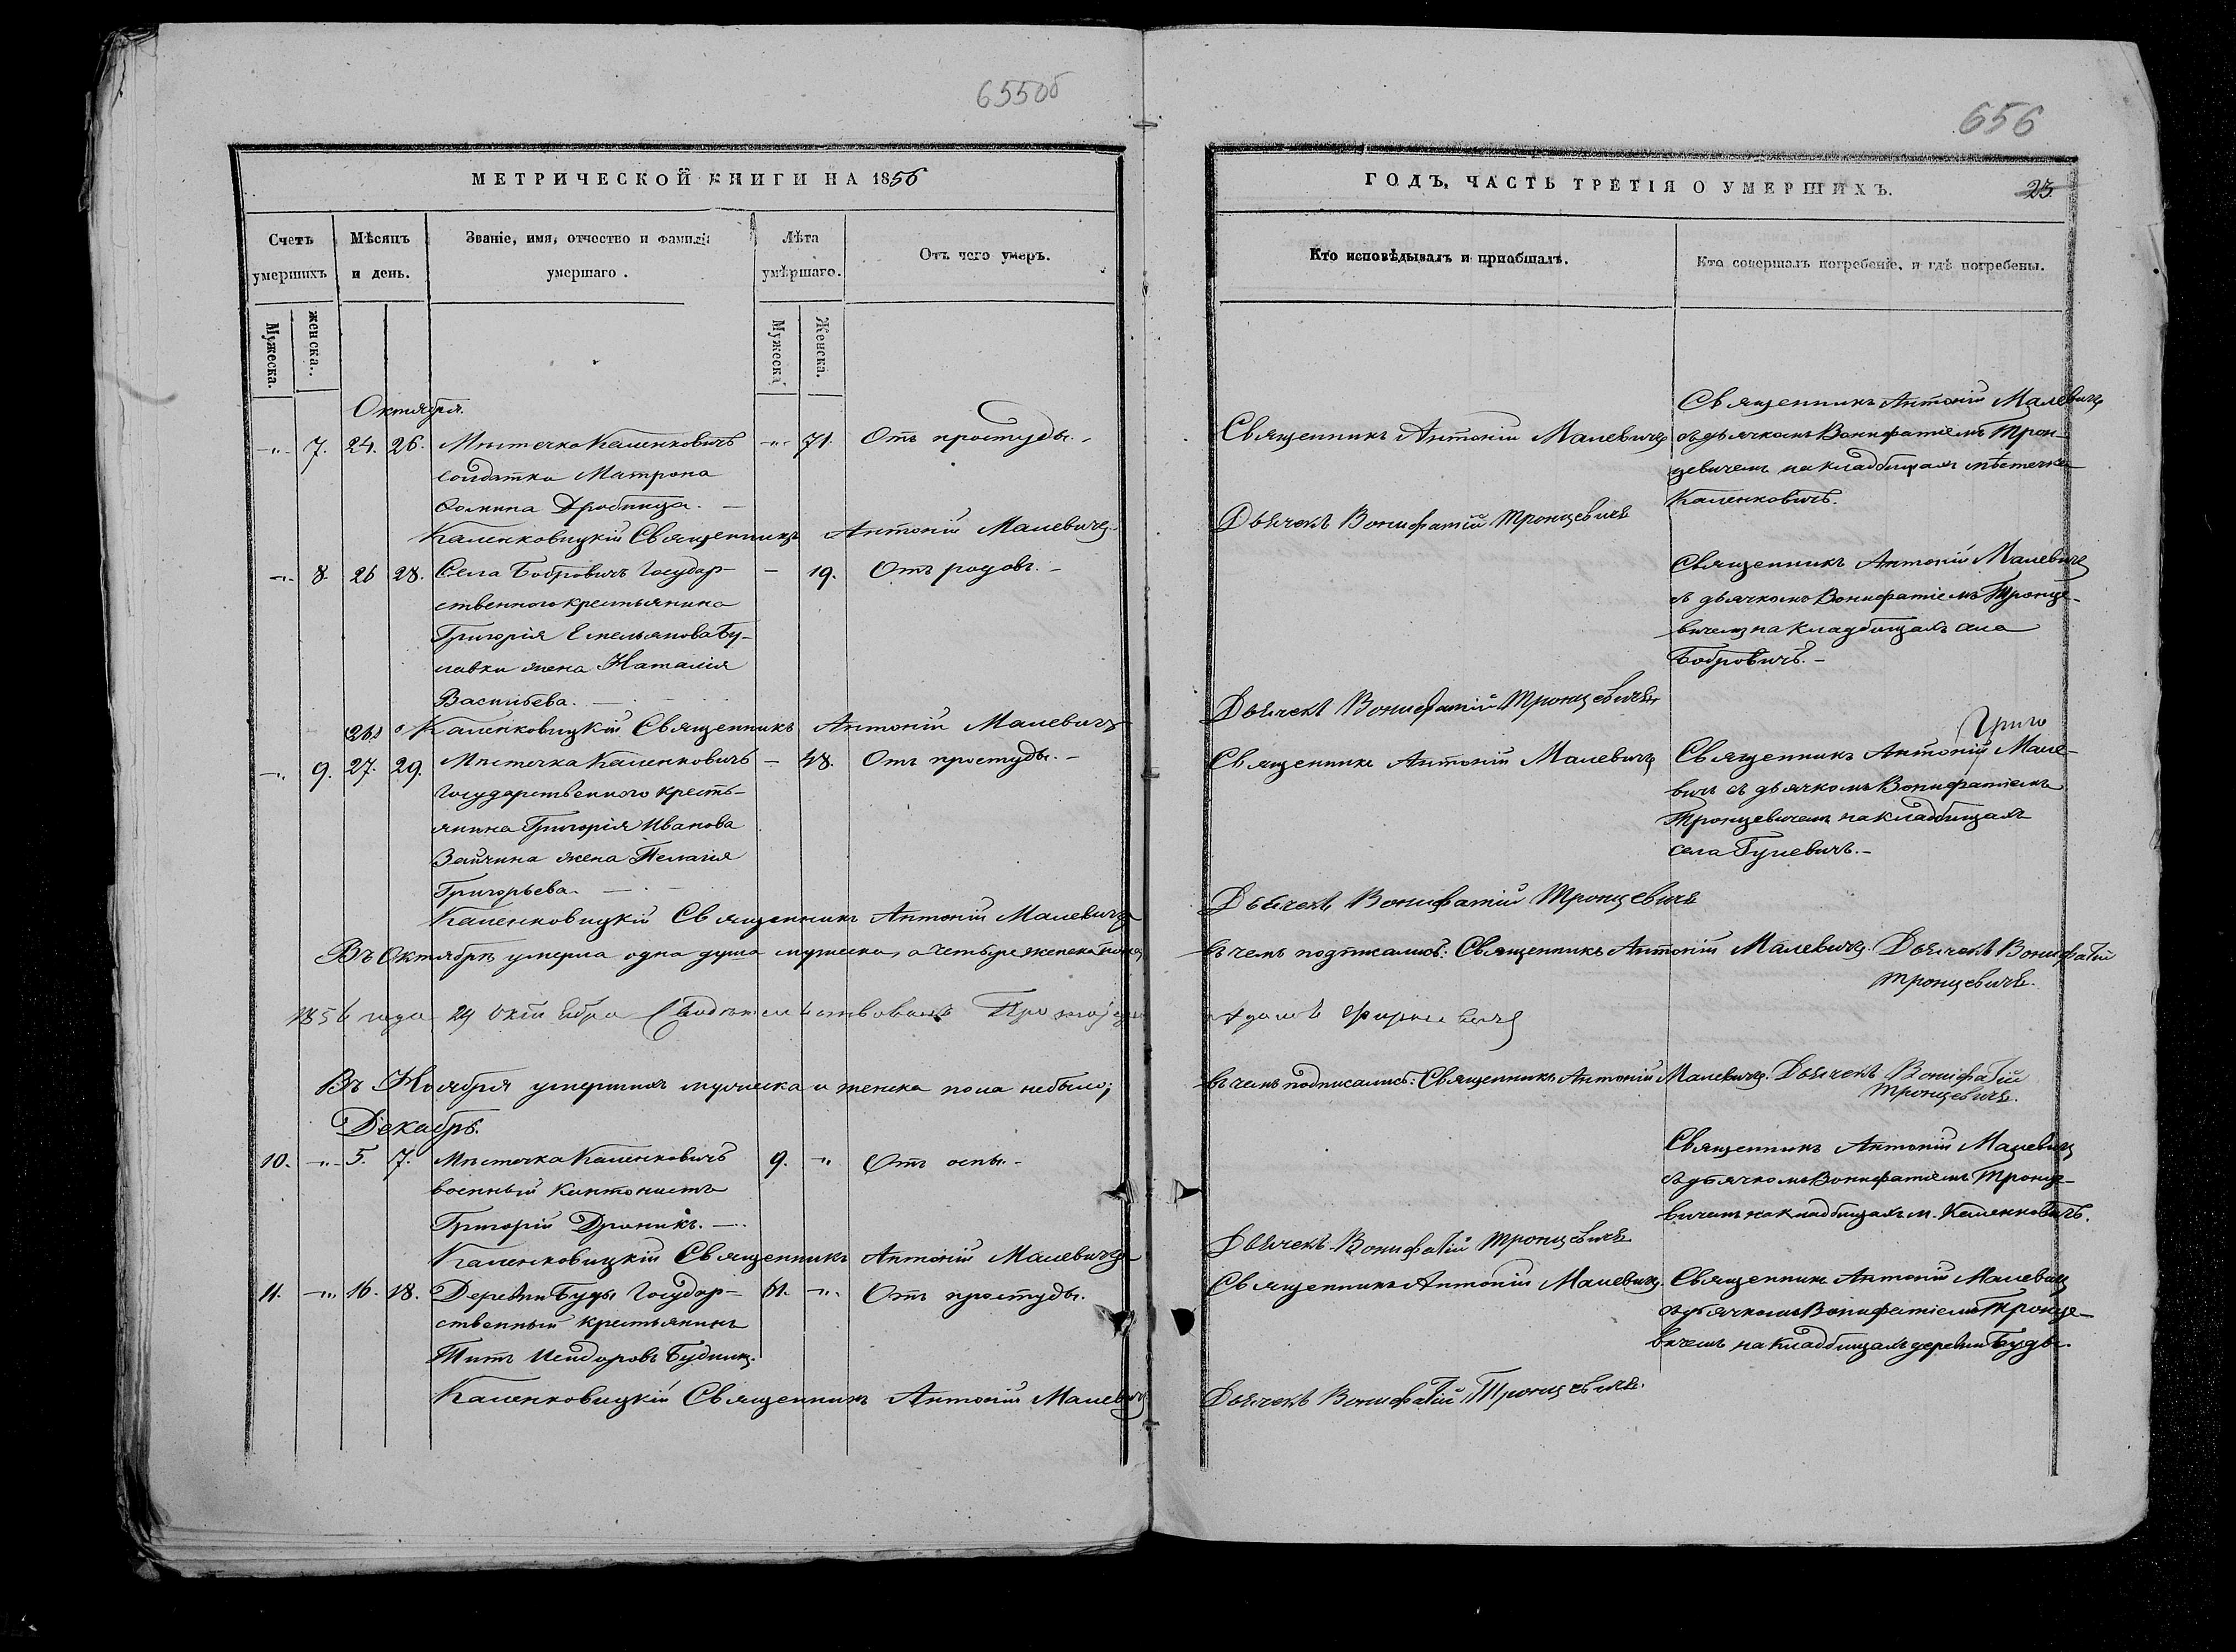 655об
МЕТРИЧЕСКОЙ КНИГИ НА 1856
Счетъ умершихъ
Мѣсяцъ и день.
Званіе, имя, отчество и фамилія умершаго.
Лѣта умѣршаго.
Отъ чего умеръ.
Мужеска. женска.
Мужеска Женска.
Октября.
-"- 7. 24. 26. Мѣстечка Каленковичъ -"- 71. Отъ простуды.-
солдатка Матрона
Фомина Дробница. —
Каленковицкій Священникъ Антоній Малевичъ
-"- 8. 26 28. Села Бобровичъ Государ- — 19. Отъ родовъ.-
ственного крестьянина
Григорія Емельянова Бу-
лавки жена Наталія
Васильева. —
26.
Каленковицкій Священникъ Антоній Малевичъ
-"- 9. 27. 29. Мѣстечка Каленковичъ — 48. Отъ простуды.-
Государственного кресть-
янина Григорія Иванова
Зайчина жена Пелагія
Григорьева. —
Каленковицкій Священникъ Антоній Малевичъ
Въ Октябрѣ умерла одна душа мужеска, а четыре женска пола,
1856 года 29 октября Свидѣтельствовалъ
Въ Ноября умершихъ мужеска и женска пола небыло;
Декабрь.
10. -"- 5. 7. Мѣстечка Каленковичъ 9. " Отъ оспы.-
военный Кантонистъ
Григорій Дроникъ. —
Каленковицкій Священникъ Антоній Малевичъ
11. -"- 16. 18. Деревни Буды Государ- 61. -"- Отъ простуды.
ственный крестьянинъ
Титъ Исидоровъ Будникъ.
Каленковицкій Священникъ Антоній Малевичъ
656
ГОДЪ, ЧАСТЬ ТРЕТІЯ О УМЕРШИХЪ.
25
Кто исповѣдывалъ и пріобщалъ.
Кто совершалъ погребеніе, и гдѣ погребены.
Священникъ Антоній Малевичъ
Священникъ Антоній Малевичъ
съ дьячкомъ Вонифатіемъ Трон-
цевичемъ на кладбищахъ мѣстечка
Каленковичъ.
Дьячекъ Вонифатій Тронцевичъ
Священникъ Антоній Малевичъ
съ дьячкомъ Вонифатіемъ Тронце-
вичемъ на кладбищахъ села
Бобровичъ.-
Дьячекъ Вонифатій Тронцевичъ
Священникъ Антоній Малевичъ
Григо
Священникъ Антоній Мале-
вичъ съ дьячкомъ Вонифатіемъ
Тронцевичемъ на кладбищахъ
села Гулевичъ.-
Дьячекъ Вонифатій Тронцевичъ
въ чемъ подписались: Священникъ Антоній Малевичъ. Дьячекъ Вонифатій
Тронцевичъ.
въ чемъ подписались: Священникъ Антоній Малевичъ. Дьячекъ Вонифатій
Тронцевичъ.
Священникъ Антоній Малевичъ
съ дьячкомъ Вонифатіемъ Тронце-
вичемъ на кладбищахъ м. Каленковичъ.
Дьячекъ Вонифатій Тронцевичъ
Священникъ Антоній Малевичъ.
Священникъ Антоній Малевичъ
съ дьячкомъ Вонифатіемъ Тронце-
вичемъ на кладбищахъ деревни Буды.
Дьячекъ Вонифатій Тронцевичъ.